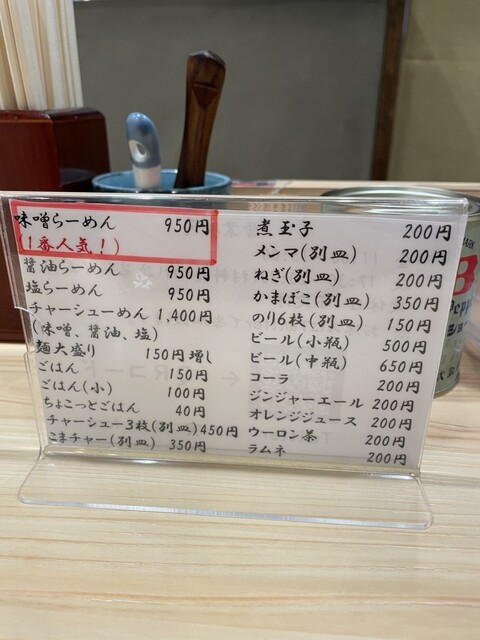 味噌らーめん 950円
(1番人気！)
醤油らーめん 950円
塩らーめん 950円
チャーシューめん 1,400円
(味噌、醤油、塩)
麺大盛り 150円増し
ごはん 150円
ごはん(小) 100円
ちょこっとごはん 40円
チャーシュー3枚(別皿)450円
こまチャー(別皿) 350円
煮玉子 200円
メンマ(別皿) 200円
ねぎ(別皿) 200円
かまぼこ(別皿) 350円
のり6枚(別皿) 150円
ビール(小瓶) 500円
ビール(中瓶) 650円
コーラ 200円
ジンジャーエール 200円
オレンジジュース 200円
ウーロン茶 200円
ラムネ 200円